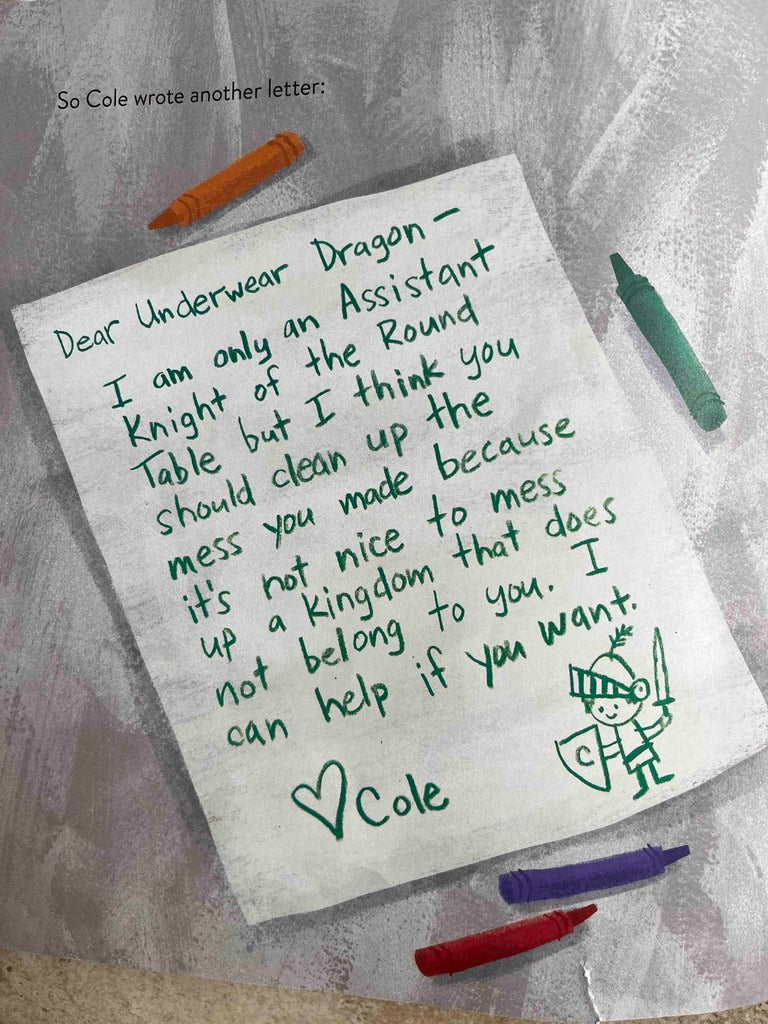 So Cole wrote another letter:
Dear Underwear Dragon –
I am only an Assistant
Knight of the Round
Table but I think you
should clean up the
mess you made because
it's not nice to mess
up a kingdom that does
not belong to you. I
can help if you want.
♡ Cole
C